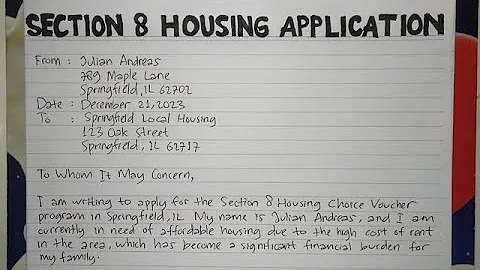 SECTION 8 HOUSING APPLICATION
From : Julian Andreas
789 Maple Lane
Springfield, IL 62702
Date : December 21, 2023
To : Springfield Local Housing
123 Oak Street
Springfield, IL 62717
To Whom It May Concern,
I am writing to apply for the Section 8 Housing Choice Voucher
program in Springfield, IL. My name is Julian Andreas, and I am
currently in need of affordable housing due to the high cost of rent
in the area, which has become a significant financial burden for
my family.